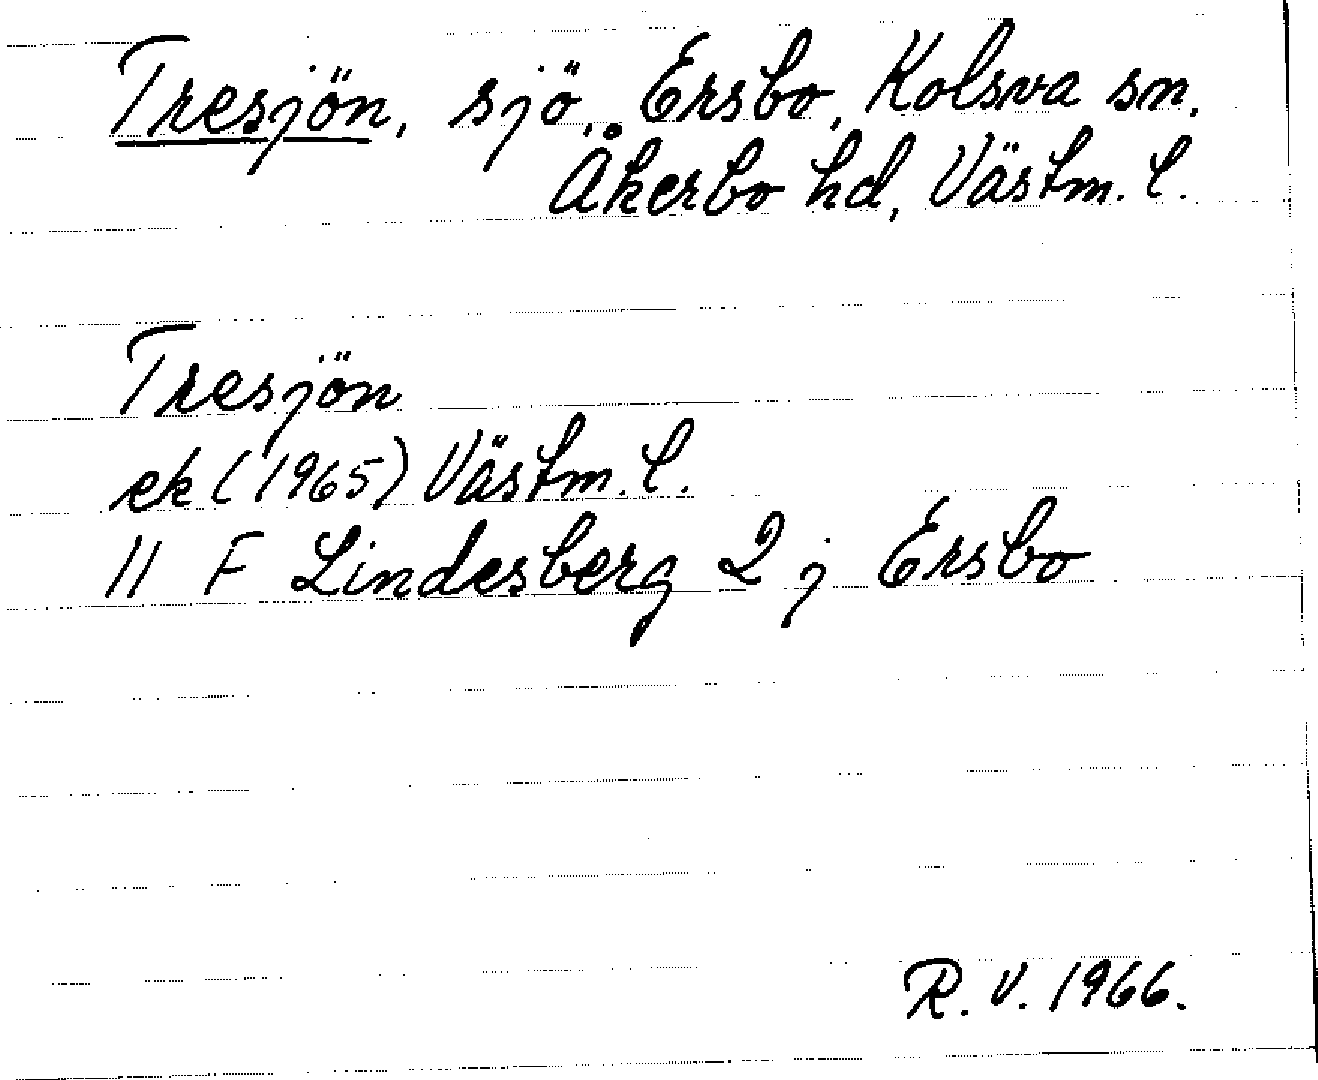 Tresjön, sjö, Ersbo, Kolsva sn,
Åkerbo hd, Västm. l.
Tresjön
ek (1965) Västm. l.
11 F Lindesberg 2 j Ersbo
R. V. 1966.